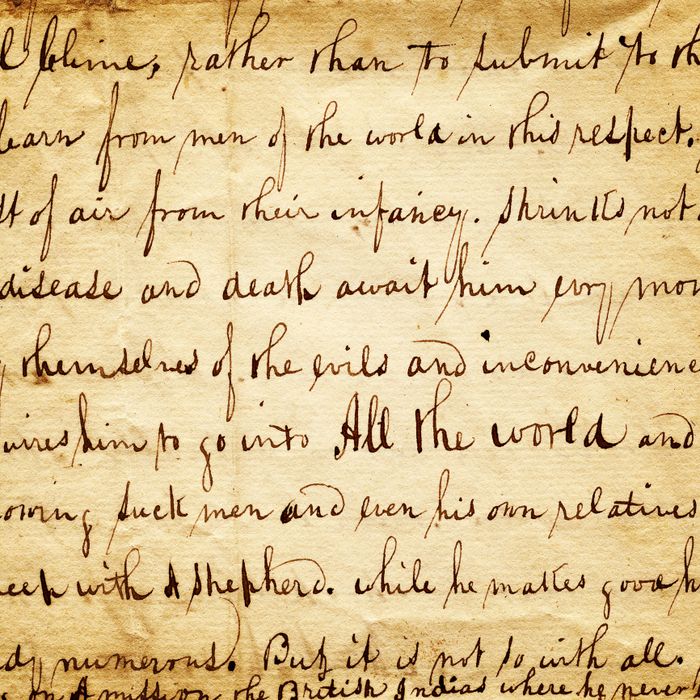 l blime, rather than to submit to th
learn from men of the world in this respect.
st of air from their infancy. Shrinks not
disease and death await him evry mom
themselves of the evils and inconvenienc
uires him to go into All the world and
owing such men and even his own relatives
eep with A shepherd. while he makes good h
dy numerous. But it is not so with all.
on A mission the British Indias where he never